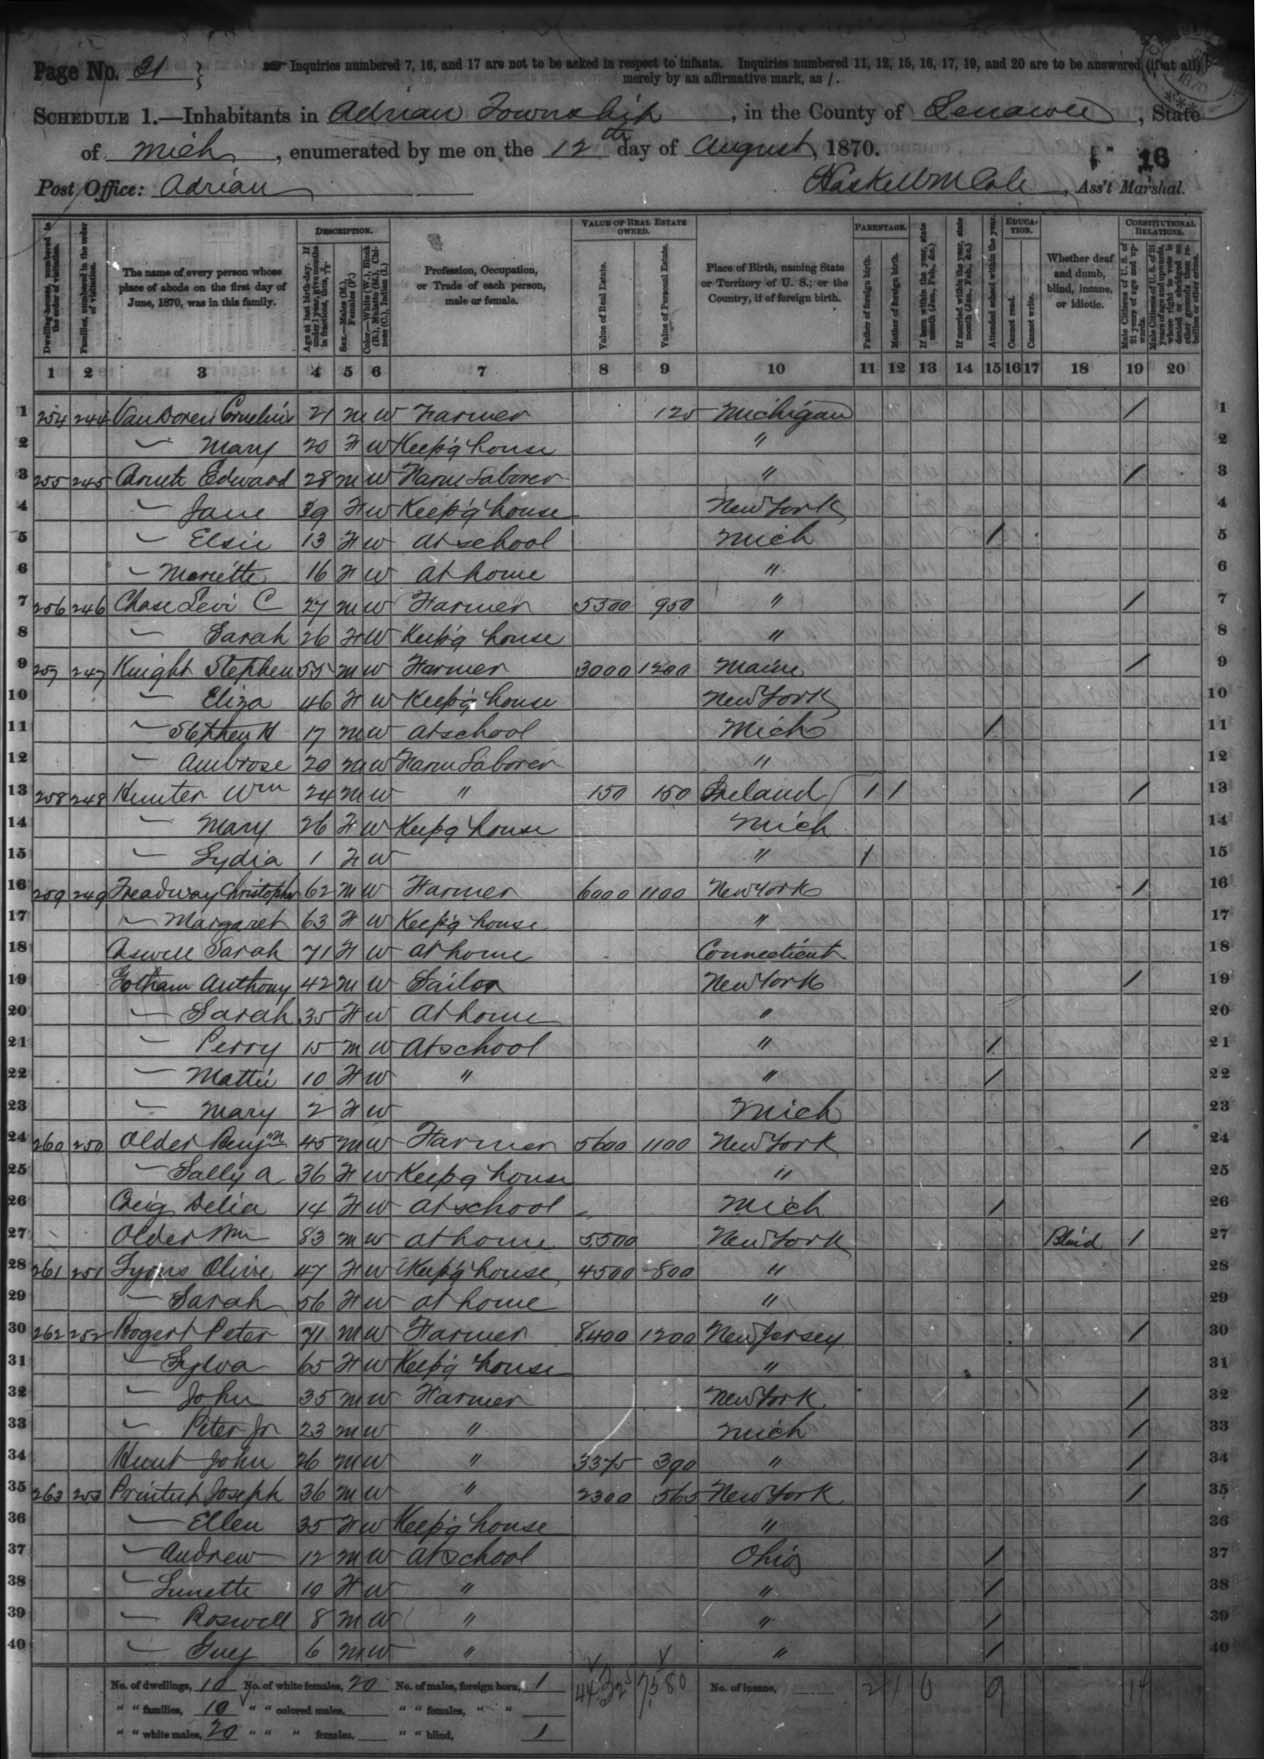 Page No. 31 } Inquiries numbered 7, 16, and 17 are not to be asked in respect to infants. Inquiries numbered 11, 12, 15, 16, 17, 19, and 20 are to be answered (if at all)
merely by an affirmative mark, as /.
SCHEDULE 1.—Inhabitants in Adrian Township, in the County of Lenawee, State
of Mich, enumerated by me on the 12th day of August, 1870.
16
Post Office: Adrian
Ass't Marshal.
Dwelling-houses, numbered in the order of visitation.
Families, numbered in the order of visitation.
The name of every person whose place of abode on the first day of June, 1870, was in this family.
DESCRIPTION.
Age at last birth-day. If under 1 year, give months in fractions, thus, 3/12
Sex.—Males (M.), Females (F.)
Color.—White (W.), Black (B.), Mulatto (M.), Chinese (C.), Indian (I.)
Profession, Occupation, or Trade of each person, male or female.
VALUE OF REAL ESTATE OWNED.
Value of Real Estate.
Value of Personal Estate.
Place of Birth, naming State or Territory of U. S.; or the Country, if of foreign birth.
PARENTAGE.
Father of foreign birth.
Mother of foreign birth.
If born within the year, state month (Jan., Feb., &c.)
If married within the year, state month (Jan., Feb., &c.)
EDUCATION.
Attended school within the year.
Cannot read.
Cannot write.
Whether deaf and dumb, blind, insane, or idiotic.
CONSTITUTIONAL RELATIONS.
Male Citizens of U. S. of 21 years of age and upwards.
1 2 3 4 5 6 7 8 9 10 11 12 13 14 15 16 17 18 19 20
1 254 244 Van Doren Cornelius 21 M W Farmer 125 Michigan / 1
2 — Mary 20 F W Keep'g house " 2
3 255 245 Edward 28 M W Farm Laborer " / 3
4 — Jane 39 F W Keep'g house New York 4
5 — Elsie 13 F W At school Mich / 5
6 — Mariette 16 F W At home " 6
7 256 246 Chase Levi C 27 M W Farmer 5300 950 " / 7
8 — Sarah 26 F W Keep'g house " 8
9 257 247 Knight Stephen 55 M W Farmer 3000 1200 Maine / 9
10 — Eliza 46 F W Keep'g house New York 10
11 — Stephen H 17 M W At school Mich / 11
12 — Ambrose 20 M W Farm Laborer " 12
13 258 248 Hunter Wm 24 M W " 150 150 Ireland / / / 13
14 — Mary 26 F W Keep'g house Mich 14
15 — Lydia 1 F W " / 15
16 259 249 Treadway Christopher 62 M W Farmer 6000 1100 New York / 16
17 — Margaret 63 F W Keep'g house " 17
18 Aswell Sarah 71 F W At home Connecticut 18
19 Gotham Anthony 42 M W Sailor New York / 19
20 — Sarah 35 F W At home " 20
21 — Perry 15 M W At school " / 21
22 — Mattie 10 F W " " / 22
23 — Mary 2 F W Mich 23
24 260 250 Older Benj'n 45 M W Farmer 5600 1100 New York / 24
25 — Sally A 36 F W Keep'g house " 25
26 Craig Delia 14 F W At school Mich / 26
27 Older Wm 83 M W At home 5500 New York Blind / 27
28 261 251 Lyons Olive 47 F W Keep'g house 4500 800 " 28
29 — Sarah 56 F W At home " 29
30 262 252 Bogert Peter 71 M W Farmer 8400 1200 New Jersey / 30
31 — Sylva 65 F W Keep'g house " 31
32 — John 35 M W Farmer New York / 32
33 — Peter Jr 23 M W " Mich / 33
34 Hunt John 26 M W " 3375 390 " / 34
35 263 253 Printup Joseph 36 M W " 2300 565 New York / 35
36 — Ellen 35 F W Keep'g house " 36
37 — Andrew 12 M W At school Ohio / 37
38 — Lunette 10 F W " " / 38
39 — Roswell 8 M W " " / 39
40 — Guy 6 M W " " / 40
No. of dwellings, 10 No. of white females, 20 No. of males, foreign born, 1 7580 No. of insane, 2 1 0 9 14
" " families, 10 " " colored males, " " females, " "
" " white males, 20 " " " females, " " blind, 1